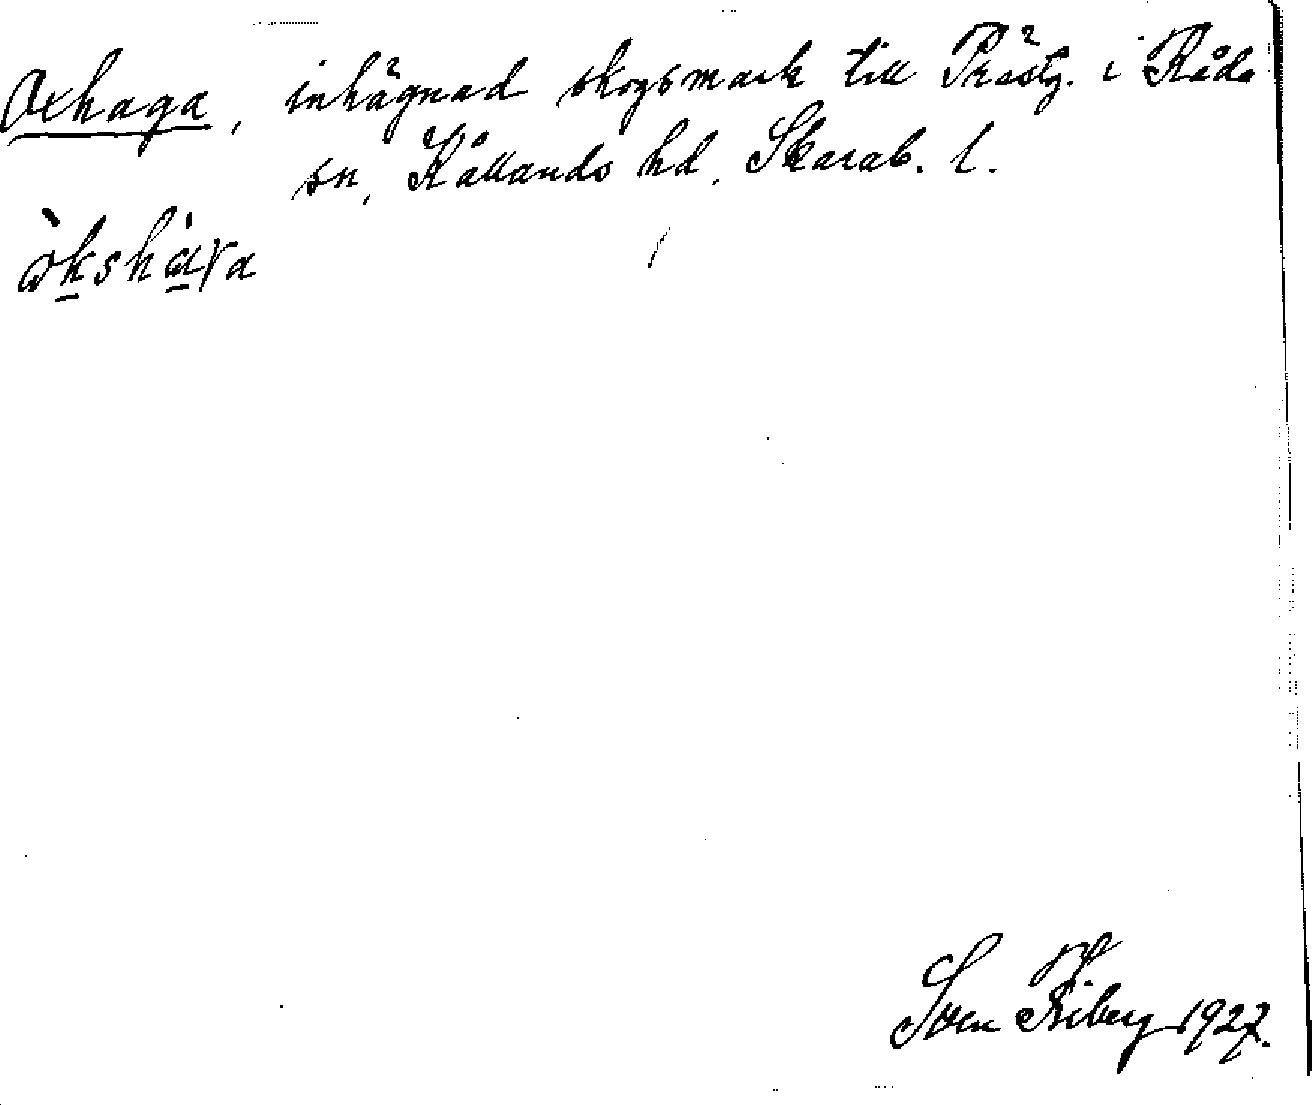 Oxhaga, inhägnad skogsmark till Prästg. i Råda
sn, Kållands hd, Skarab. l.
òkshàɣa
Sven Friberg 1927.